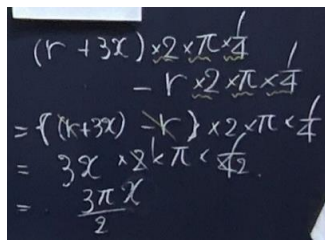 (r + 3x) × 2 × π × 1/4
- r × 2 × π × 1/4
= {(r+3x) - r} × 2 × π × 1/4
= 3x × 2 × π × 1/42
= 3πx/2